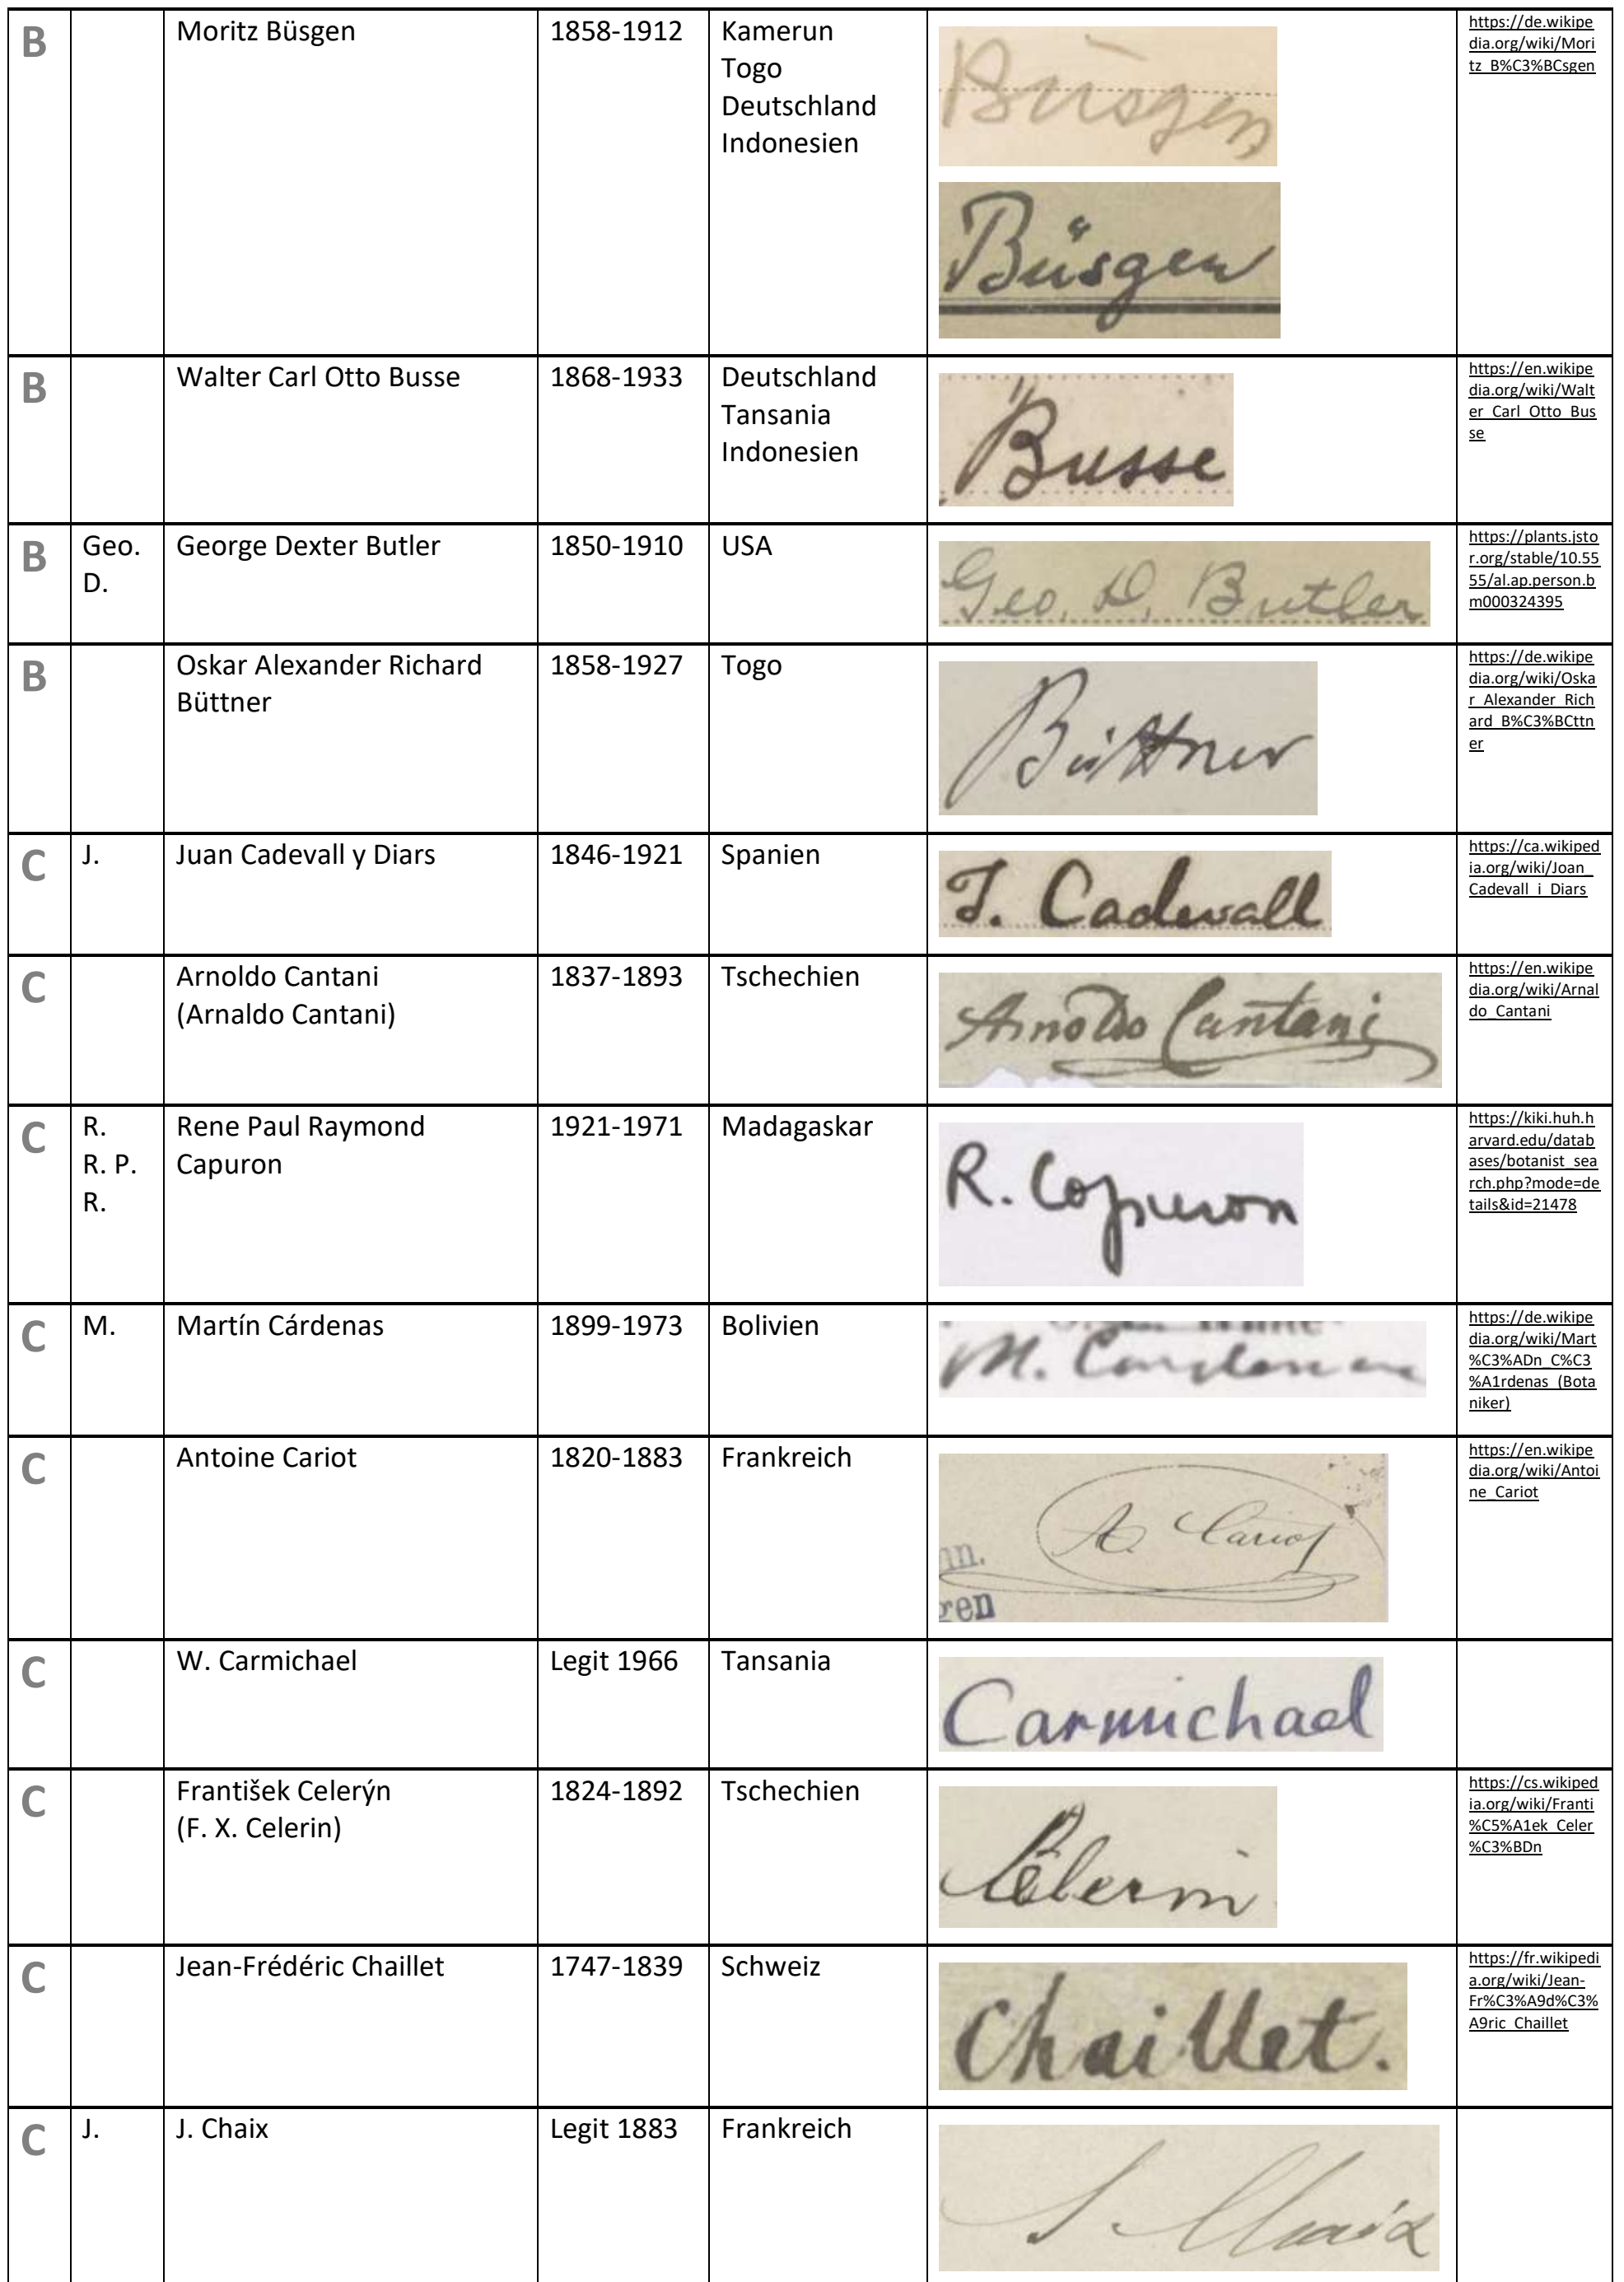 B
Moritz Büsgen
1858-1912
Kamerun
Togo
Deutschland
Indonesien
Büsgen
Büsgen
https://de.wikipe
dia.org/wiki/Mori
tz_B%C3%BCsgen
B
Walter Carl Otto Busse
1868-1933
Deutschland
Tansania
Indonesien
Busse
https://en.wikipe
dia.org/wiki/Walt
er_Carl_Otto_Bus
se
B
Geo.
D.
George Dexter Butler
1850-1910
USA
Geo. D. Butler
https://plants.jsto
r.org/stable/10.55
55/al.ap.person.b
m000324395
B
Oskar Alexander Richard
Büttner
1858-1927
Togo
Büttner
https://de.wikipe
dia.org/wiki/Oska
r_Alexander_Rich
ard_B%C3%BCttn
er
C
J.
Juan Cadevall y Diars
1846-1921
Spanien
J. Cadevall
https://ca.wikiped
ia.org/wiki/Joan_
Cadevall_i_Diars
C
Arnoldo Cantani
(Arnaldo Cantani)
1837-1893
Tschechien
Arnoldo Cantani
https://en.wikipe
dia.org/wiki/Arnal
do_Cantani
C
R.
R. P.
R.
Rene Paul Raymond
Capuron
1921-1971
Madagaskar
R. Capuron
https://kiki.huh.h
arvard.edu/datab
ases/botanist_sea
rch.php?mode=de
tails&id=21478
C
M.
Martín Cárdenas
1899-1973
Bolivien
M. Cardenas
https://de.wikipe
dia.org/wiki/Mart
%C3%ADn_C%C3
%A1rdenas_(Bota
niker)
C
Antoine Cariot
1820-1883
Frankreich
A. Cariot
nn.
gen
https://en.wikipe
dia.org/wiki/Antoi
ne_Cariot
C
W. Carmichael
Legit 1966
Tansania
Carmichael
C
František Celerýn
(F. X. Celerin)
1824-1892
Tschechien
Celerin
https://cs.wikiped
ia.org/wiki/Franti
%C5%A1ek_Celer
%C3%BDn
C
Jean-Frédéric Chaillet
1747-1839
Schweiz
Chaillet.
https://fr.wikipedi
a.org/wiki/Jean-
Fr%C3%A9d%C3%
A9ric_Chaillet
C
J.
J. Chaix
Legit 1883
Frankreich
J. Chaix